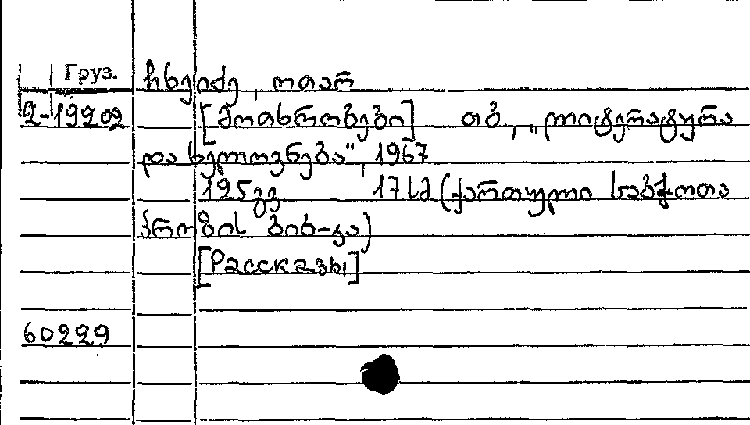 Груз. ჩხეიძე, ოთარ
2-19202 [მოთხრობები] თბ., „ლიტერატურა
და ხელოვნება“, 1967
195 გვ. 17სმ (ქართული საბჭოთა
პროზის ბიბ-კა)
[Рассказы]
60229